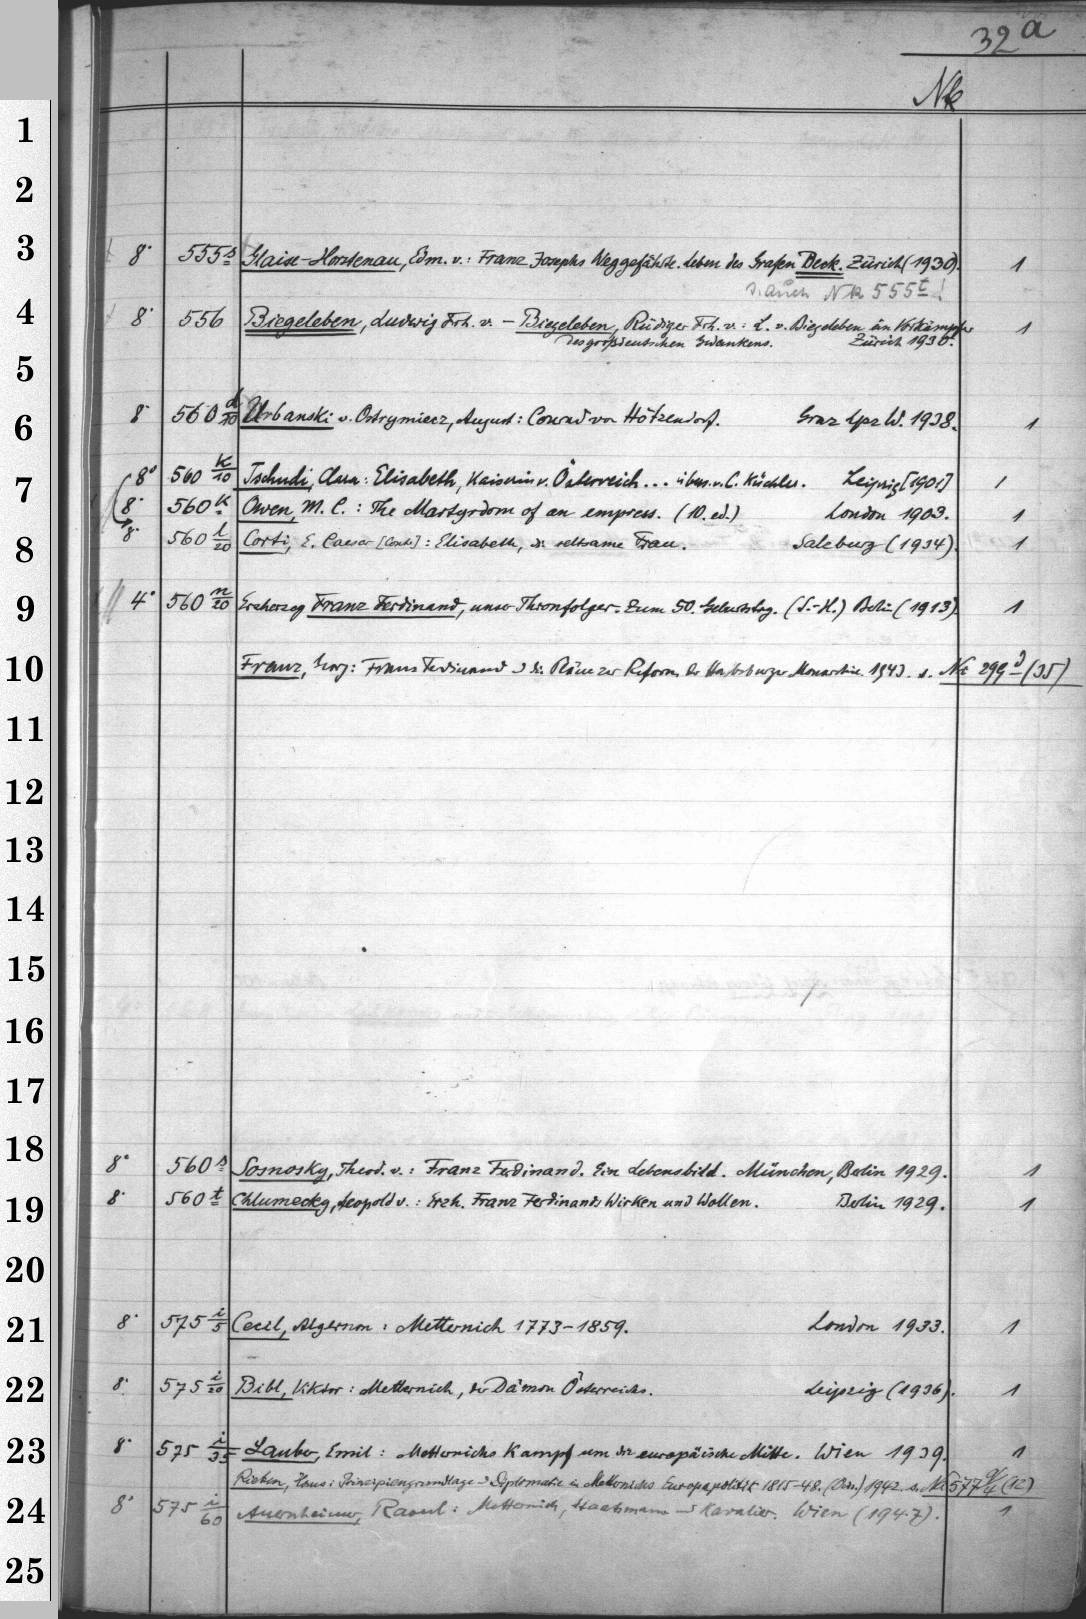 32a
Nk
1
2
3 8° 555 s Glaise-Horstenau, Edm. v.: Franz Josephs Weggefährte. Leben des Grafen Beck. Zürich (1930). 1
s. auch Nk 555 t!
4 8° 556 Biegeleben, Ludwig Frh. v. – Biegeleben, Rüdiger Frh. v.: L. v. Biegeleben ein Vorkämpfer 1
des großdeutschen Gedankens. Zürich 1930.
5
6 8° 560 d/10 Urbanski v. Ostrymiecz, August: Conrad von Hötzendorf. Graz Lpz W. 1938. 1
7 8° 560 k/10 Tschudi, Clara: Elisabeth, Kaiserin v. Österreich... übers. v. C. Küchler. Leipzig [1901] 1
8° 560 k Owen, M. C.: The Martyrdom of an empress. (10. ed.) London 1903. 1
8 8° 560 l/20 Corti, E. Caesar [Conte]: Elisabeth, die seltsame Frau. Salzburg (1934). 1
9 4° 560 n/20 Erzherzog Franz Ferdinand, unser Thronfolger. Zum 50. Geburtstag. (S.-H.) Berlin (1913) 1
10 Franz, Georg: Franz Ferdinand u die Pläne zur Reform der Habsburger Monarchie. 1943. s. Nk 299 d (35)
11
12
13
14
15
16
17
18 8° 560 s Sosnosky, Theod. v.: Franz Ferdinand. Ein Lebensbild. München, Berlin 1929. 1
19 8° 560 t Chlumecky, Leopold v.: Erzh. Franz Ferdinands Wirken und Wollen. Berlin 1929. 1
20
21 8° 575 i/5 Cecil, Algernon: Metternich 1773–1859. London 1933. 1
22 8° 575 i/20 Bibl, Viktor: Metternich, der Dämon Österreichs. Leipzig (1936). 1
23 8° 575 i/35 Lauber, Emil: Metternichs Kampf um die europäische Mitte. Wien 1939. 1
Rieben, Hans: Prinzipiengrundlage u Diplomatie in Metternichs Europapolitik 1815–48. (Diss.) 1942. s. Nk 577 (12)
24 8° 575 i/60 Auernheimer, Raoul: Metternich, Staatsmann u Kavalier. Wien (1947). 1
25